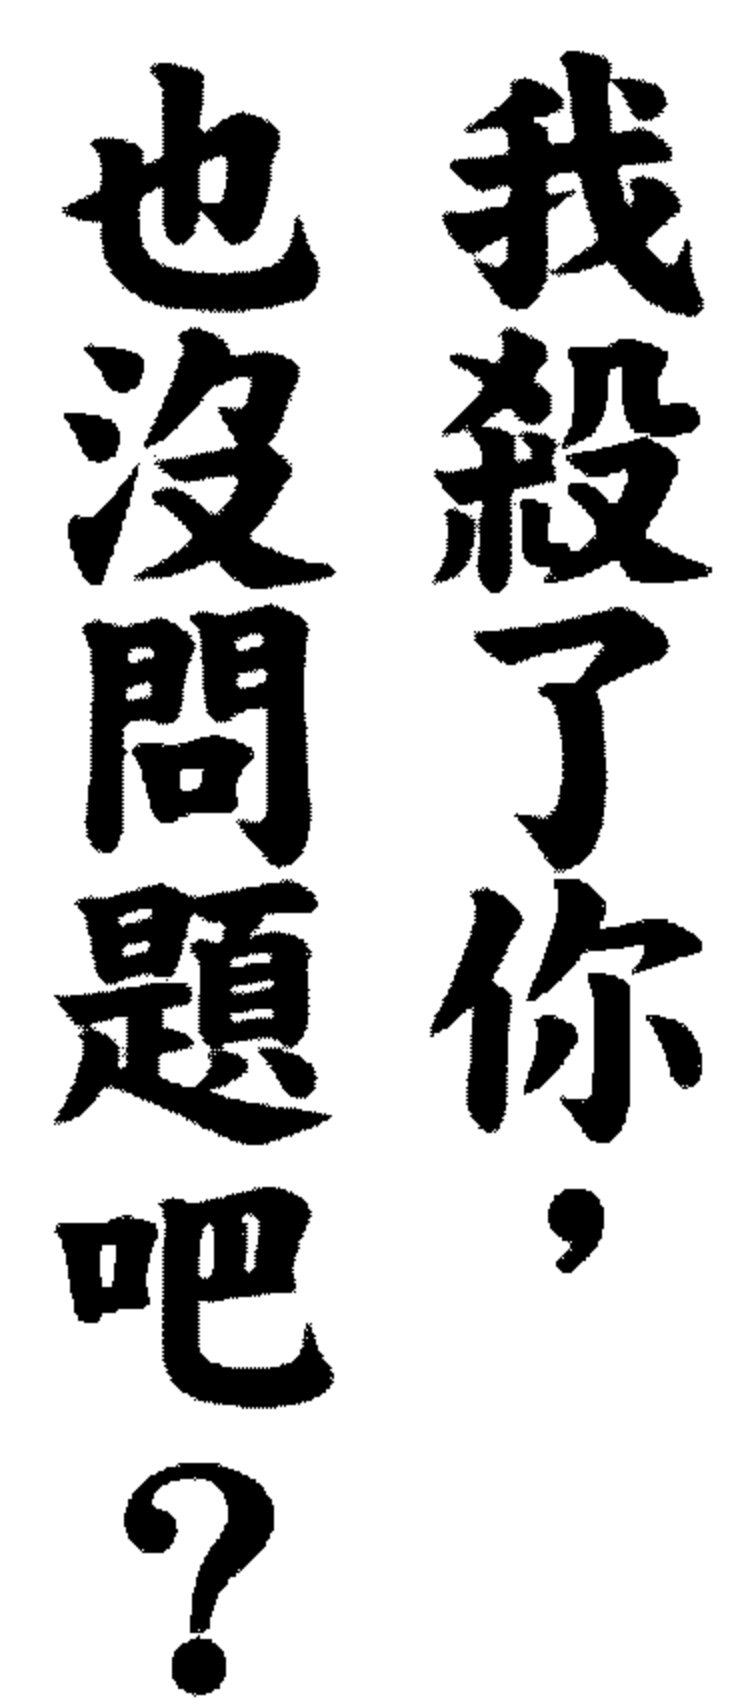 我殺了你，
也沒問題吧？